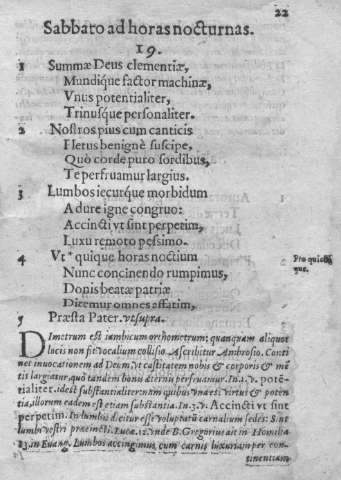 22
Sabbato ad horas nocturnas.
19.
1 Summæ Deus clementiæ,
Mundique factor machinæ,
Vnus potentialiter,
Trinusque personaliter.
2 Nostros pius cum canticis
Fletus benignè suscipe,
Quò corde puro sordibus,
Te perfruamur largius.
3 Lumbos iecurque morbidum
Adure igne congruo:
Accincti vt sint perpetim,
Luxu remoto pessimo.
4 Vt * quique horas noctium
Nunc concinendo rumpimus,
Donis beatæ patriæ
Ditemur omnes affatim,
5 Præsta Pater. vt supra.
Pro quicũ
que.
DImetrum est iambicum orthometrum; quanquam aliquot
locis non fit vocalium collisio. Ascribitur Ambrosio. Conti
net inuocationem ad Deum, vt castitatem nobis & corporis & mẽ
tis largiatur, quo tandem bonis æternis perfruamur. In. 1. v. potẽ-
tialiter. idest substantialiter: nam quibus
illorum eadem est etiam substantia. In. 3. v. Accincti vt sint
perpetim. In lumbis dicitur esse voluptatũ carnalium sedes: Sint
lumbi vestri præcincti. Lucæ. 12. vnde B. Gregorius ait in Homilia
13. in Euang. Lumbos accingimus, cum carnis luxuriam per con-
tinentiam